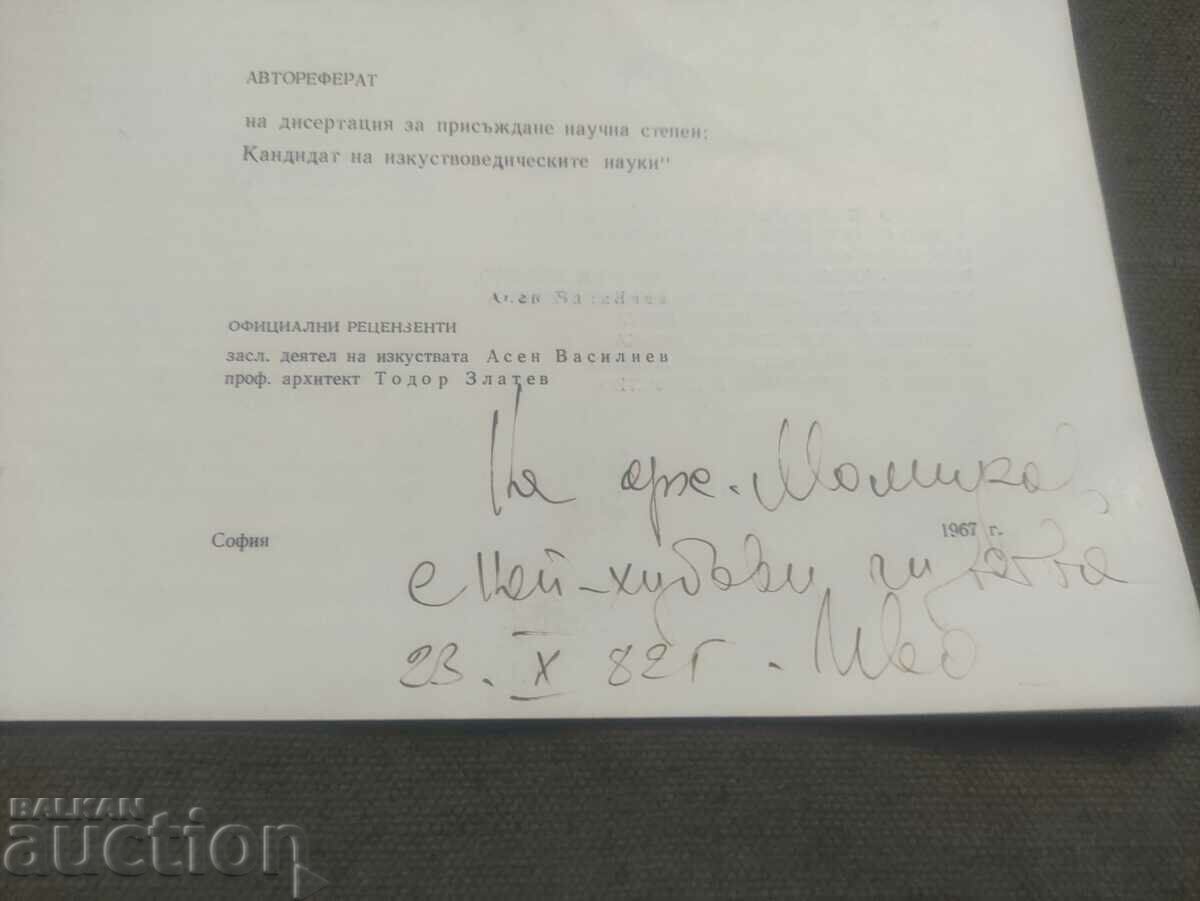 АВТОРЕФЕРАТ
на дисертация за присъждане научна степен:
Кандидат на изкуствоведическите науки"
ОФИЦИАЛНИ РЕЦЕНЗЕНТИ
засл. деятел на изкуствата Асен Василиев
проф. архитект Тодор Златев
На
София
1967 г.
с най-хубави чувства
23. X 82 г.
BALKAN
auction